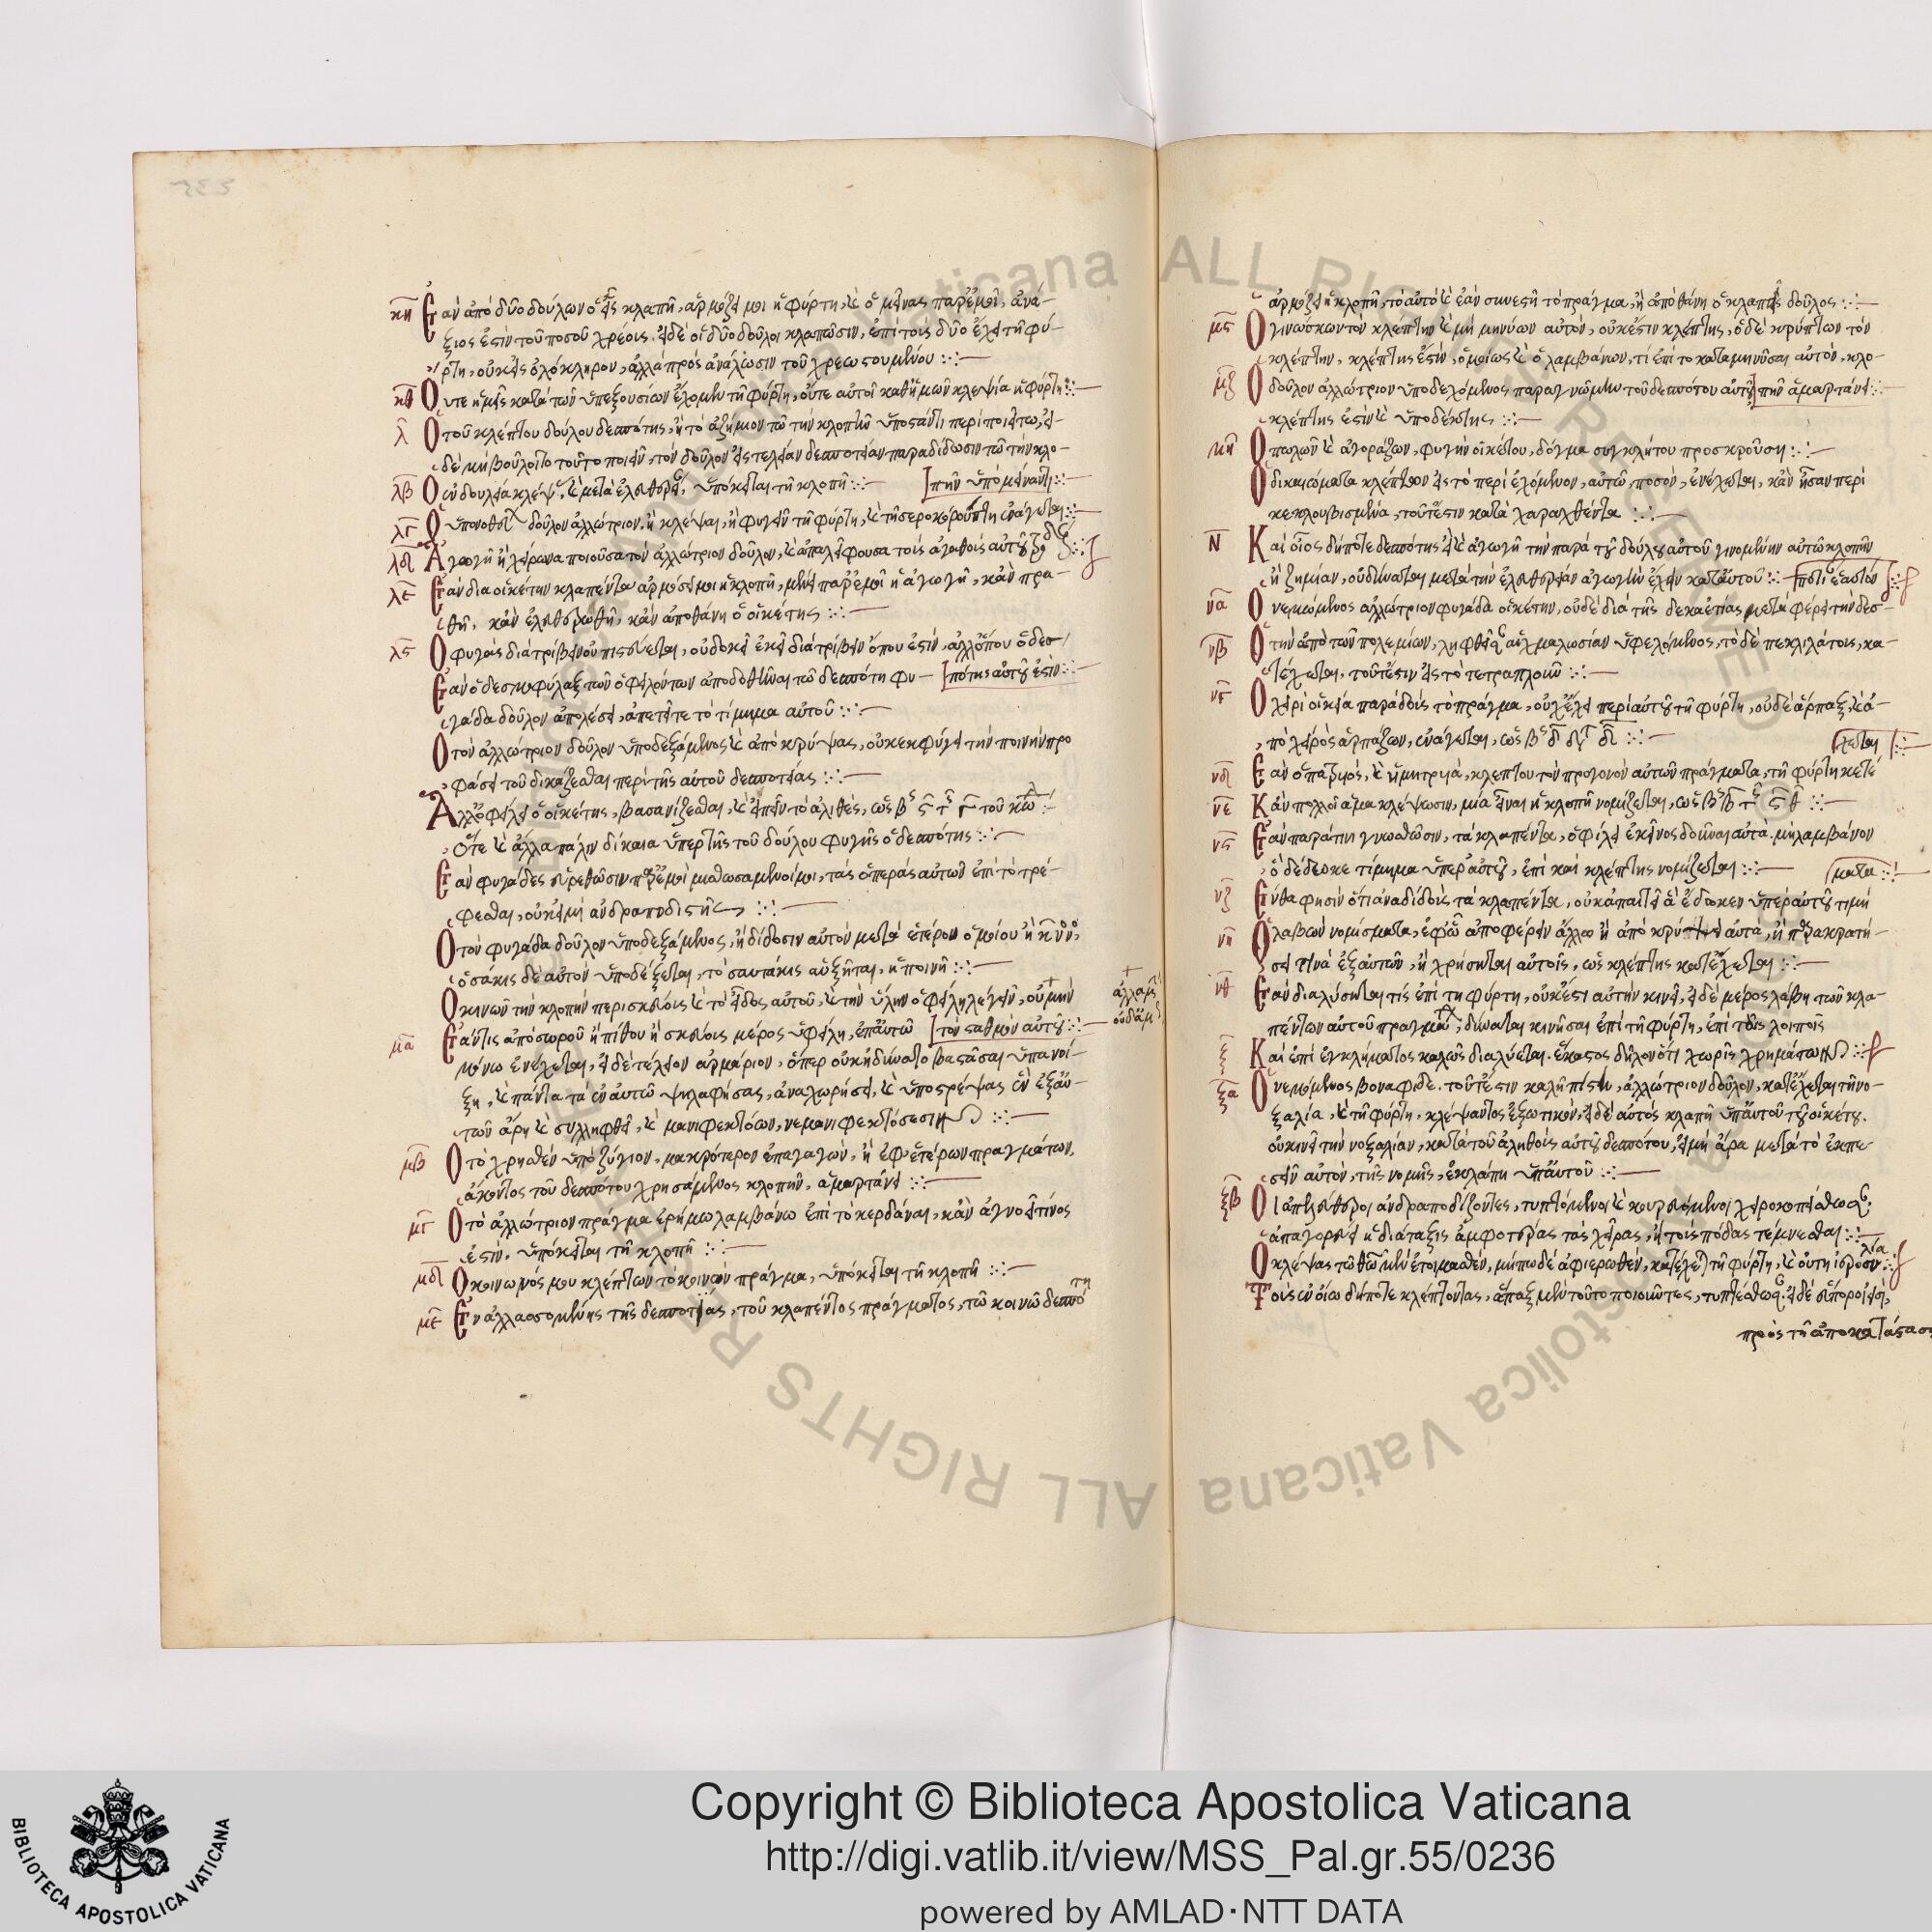 κη Ἐὰν ἀπὸ δύο δούλων ὁ εἷς κλαπῇ, ἁρμόζει μοι ἡ φύρτη, καὶ ὁ μείνας παρ' ἐμοὶ, ἀνά-
ξιος ἐστὶν τοῦ ποσοῦ χρέους. εἰ δὲ οἱ δύο δοῦλοι κλαπῶσιν, ἐπὶ τοῖς δύο ἔχει τὴν φύ-
ρτη, οὐκ εἰς ὁλόκληρον, ἀλλὰ πρὸς ἀνάλωσιν τοῦ χρεωστουμένου
κθ Οὔτε ἡμεῖς κατὰ τῶν ὑπεξουσίων ἔχομεν τὴν φύρτη, οὔτε αὐτοὶ καθ' ἡμῶν κλεψία ἡ φύρτη
λ Ὁ τοῦ κλέπτου δούλου δεσπότης, ἢ τὸ ἀζήμιον τῷ τὴν κλοπὴν ὑποστάντι περιποιείτω, εἰ
δὲ μὴ βούλοιτο τοῦτο ποιεῖν, τὸν δοῦλον εἰς τελείαν δεσποτείαν παραδίδωσιν τῷ τὴν κλο-
πὴν ὑπομείναντι
λβ Ὁ ἐν δουλείᾳ κλέψας, καὶ μετὰ ἐλευθερίαν, ὑπόκειται τῇ κλοπῇ
λγ δοῦλον ἀλλότριον. ἢ κλέψαι, ἢ φυγεῖν τῇ φύρτη, καὶ τῇ σερβοκορούπτη ἐνάγεται
λδ Ἀγωγὴ ἡ χείρωνα ποιοῦσα τὸν ἀλλότριον δοῦλον, καὶ ἀπαλείφουσα τοῖς ἀγαθοῖς αὐτοῦ
λε Ἐὰν δια οἰκέτην κλαπέντα ἁρμόσει μοι ἡ κλοπὴ, μένει παρ' ἐμοὶ ἡ ἀγωγὴ, κἂν πρα-
θῇ, κἂν ἐλευθερωθῇ, κἂν ἀποθάνῃ ὁ οἰκέτης
λς Ὁ φυγὰς διατρίβειν οὐ πιστεύεται, οὗ δοκεῖ ἐκεῖ διατρίβειν ὅπου ἐστὶν, ἀλλ' ὅπου ὁ δεσ-
πότης αὐτοῦ ἐστὶν
Ἐὰν ὁ δεσμοφύλαξ τῶν ὀφειλούντων ἀποδοθῆναι τῷ δεσπότῃ φυ-
γάδα δοῦλον ἀπολέσει, ἀπετεῖτε τὸ τίμημα αὐτοῦ
Ὁ τὸν ἀλλότριον δοῦλον ὑποδεξάμενος καὶ ἀποκρύψας, οὐκ ἐκφύγει τὴν ποινὴν προ
φάσει τοῦ δικάζεσθαι περὶ τῆς αὐτοῦ δεσποτείας
Ἀλλ' ὀφείλει ὁ οἰκέτης, βασανίζεσθαι, καὶ εἰπεῖν τὸ ἀληθὲς, ὡς
Ὅτε καὶ ἄλλα πάλιν δίκαια ὑπὲρ τῆς τοῦ δούλου φυγῆς ὁ δεσπότης
Ἐὰν φυγάδες εὑρεθῶσιν παρ' ἐμοὶ μισθωσάμενοί μοι, τὰς ὀπερὰς αὐτῶν ἐπὶ τὸ τρέ-
φεσθαι, οὐκ εἰμὶ ἀνδραποδιστὴς
Ὁ τὸν φυγάδα δοῦλον ὑποδεξάμενος, ἢ δίδοσιν αὐτὸν μετὰ ἑτέρου ὁμοίου ἢ
ὁσάκις δὲ αὐτὸν ὑποδέξεται, τὸ σαυτάκις αὐξῆται, ἡ ποινὴ
Ὁ κινῶν τὴν κλοπὴν περὶ σκεύους καὶ τὸ εἶδος αὐτοῦ, καὶ τὴν ὕλην ὀφείλῃ λέγειν, οὐ μὴν
τὸν σταθμὸν αὐτοῦ
μα Ἐάν τις ἀπὸ σωροῦ ἢ πίθου ἢ σκεύους μέρος ὑφείλῃ, ἐπ' αὐτῷ
μόνῳ ἐνέχεται, εἰ δὲ τέλειον ἀρμάριον, ὅπερ οὐκ ἠδύνατο βαστᾶσαι ὑπανοί-
ξῃ, καὶ πάντα τὰ ἐν αὐτῷ ψηλαφήσας, ἀναχωρήσει, καὶ ὑποστρέψας ἓν ἐξ αὐ-
τῶν ἄρῃ καὶ συλληφθεῖ, καὶ μανιφεκτόσων, νεμανιφεκτόσεστιν
μβ Ὁ τὸ χρησθὲν ὑποζύγιον, μακρότερον ἐπαγαγὼν, ἢ ἐφ' ἑτέρων πραγμάτων,
ἄκοντος τοῦ δεσπότου χρησάμενος κλοπὴν, ἁμαρτάνει
μγ Ὁ τὸ ἀλλότριον πράγμα ἐρήμω λαμβάνω ἐπὶ τὸ κερδάναι, κἂν ἀγνοεῖ τίνος
ἐστὶν, ὑπόκειται τῇ κλοπῇ
μδ Ὁ κοινωνός μου κλέπτων τὸ κοινὸν πράγμα, ὑπόκειται τῇ κλοπῇ
με Ἐναλλασσομένης τῆς δεσποτείας, τοῦ κλαπέντος πράγματος, τῷ κοινῷ δεσπότη
ἁρμόζει ἡ κλοπὴ, τὸ αὐτὸ καὶ ἐὰν συνεστῇ τὸ πράγμα, ἢ ἀποθάνῃ ὁ κλαπεὶς δοῦλος
μς Ὁ γινώσκων τὸν κλέπτην καὶ μὴ μηνύων αὐτὸν, οὐκ ἔστιν κλέπτης, ὁ δὲ κρύπτων τὸν
κλέπτην, κλέπτης ἐστὶν, ὁμοίως καὶ ὁ λαμβάνων, τί ἐπὶ το καταμηνῦσαι αὐτὸν, κλο-
πὴν ἁμαρτάνει
μζ Ὁ δοῦλον ἀλλότριον ὑποδεχόμενος παρὰ γνώμην τοῦ δεσπότου αὐτοῦ
κλέπτης ἐστὶν καὶ ὑποδέκτης
μη Ὁ πωλῶν καὶ ἀγοράζων, φυγὴν οἰκέτου, δόγμα συγκλήτου προσκρούσῃ
Ὁ δικαιώματα κλέπτων εἰς τὸ περιεχόμενον, αὐτῷ, ποσὸν, ἐνέχεται, κἂν ἦσαν περὶ
κεκλουβισμένα, τοῦτ' ἔστιν κατὰ χαραχθέντα
ν Καὶ οἷος δήποτε δεσπότης εἰ καὶ ἀγωγὴ τὴν παρὰ τοῦ δούλου αὐτοῦ γινομένην αὐτῷ κλοπὴν
ἢ ζημίαν, οὐ δύναται μετὰ τὴν ἐλευθερείαν ἀγωγὴν ἔχειν κατ' αὐτοῦ
να Ὁ νεμώμενος ἀλλότριον φυγάδα οἰκέτην, οὐδὲ διὰ τῆς δεκαετίας μεταφέρει τὴν δεσ-
νβ Ὁ τὴν ἀπὸ τῶν πολεμίων, αἰχμαλωσίαν ὑφελόμενος, τὸ δὲ πεκιλάτοις, κα-
τέχεται, τοῦτ' ἔστιν εἰς τὸ τετραπλοῦν
νγ Ὁ χειρὶ οἰκεία παραδοὺς τὸ πράγμα, οὐχ ἔξει περὶ αὐτοῦ τὴν φύρτη, οὐδὲ ἅρπαξ, καὶ ἀ-
πὸ χειρὸς ἁρπάζων, ἐνάγεται, ὡς
νδ Ἐὰν ὁ πατρυιὸς, καὶ ἡ μητρυιὰ, κλέπτου τὸν προγονὸν αὐτῶν πράγματα, τῇ φύρτη κατέ
χεται
νε Κἂν πολλοὶ ἅμα κλέψωσιν, μία εἶναι ἡ κλοπὴ νομίζεται, ὡς
νς Ἐὰν παρά τινι γνωσθῶσιν, τὰ κλαπέντα, ὀφίλει ἐκεῖνος δοῦναι αὐτὰ. μὴ λαμβάνον
ὁ δέδεοκε τίμημα ὑπὲρ αὐτοῦ, ἐπὶ καὶ κλέπτης νομίζεται
νζ Ἔνθα φησὶν ὅτι ἀναδίδοις τὰ κλαπέντα, οὐκ ἀπαιτεῖ ἃ ἔδοκεν ὑπὲρ αὐτοῦ τιμή
ματα
νη Ὁ λαβὼν νομίσματα, ἐφ' ᾧ ἀποφέρειν ἄλλω ἢ ἀποκρύ αὐτὰ, ἢ παρακρατή-
σει τινὰ ἐξ αὐτῶν, ἢ χρήσηται αὐτοῖς, ὡς κλέπτης κατέχεται
νθ Ἐὰν διαλύσηται τίς ἐπὶ τῇ φύρτη, οὐκ ἔστι αὐτὴν κινεῖ, εἰ δὲ μέρος λάβῃ τῶν κλα-
πέντων αὐτοῦ πραγμάτων, δύναται κινῆσαι ἐπὶ τῇ φύρτη, ἐπὶ τοῖς λοιποῖς
ξ Καὶ ἐπὶ ἐγκλήματος καλῶς διαλύεται. ἕκαστος δηλονότι χωρὶς χρημάτων
ξα Ὁ νεμόμενος βοναφιδε. τοῦτ' ἔστιν καλῇ πίστει, ἀλλότριον δοῦλον, κατέχεται τῇ νο-
ξαλία, καὶ τῇ φύρτη, κλέψαντος ἐξωτικὸν, εἰ δὲ αὐτὸς κλαπῇ ὑπ' αὐτοῦ τοῦ οἰκέτου.
οὐ κινεῖ τὴν νοξαλίαν, κατὰ τοῦ ἀληθοῦς αὐτοῦ δεσπότου, εἰ μὴ ἄρα μετὰ τὸ ἐκπε-
σεῖν αὐτὸν, τῆς νομῆς, ἐκλάπη ὑπ' αὐτοῦ
ξβ Οἱ ἀπελεύθεροι ἀνδραποδίζοντες, τυπτόμενοι καὶ κουρευόμενοι χειροκοπείσθωσαν.
ἀπαγορεύει ἡ διάταξις ἀμφοτέρας τὰς χεῖρας, ἢ τοὺς πόδας τέμνεσθαι
Ὁ κλέψας τῷ θεῷ μὲν ἑτοιμασθὲν, μήπω δὲ ἀφιερωθὲν, κατέχεται τῇ φύρτη, καὶ οὔτη ἱεροσυλία
Τοὺς ἐν οἵω δήποτε κλέπτοντας, ἅπαξ μὲν τοῦτο ποιοῦντες, τυπτέσθωσαν. εἰ δὲ εὔποροι εἰσὶ,
πρὸς τῇ ἀποκαταστάσει
Copyright © Biblioteca Apostolica Vaticana
http://digi.vatlib.it/view/MSS_Pal.gr.55/0236
powered by AMLAD·NTT DATA
BIBLIOTECA APOSTOLICA VATICANA